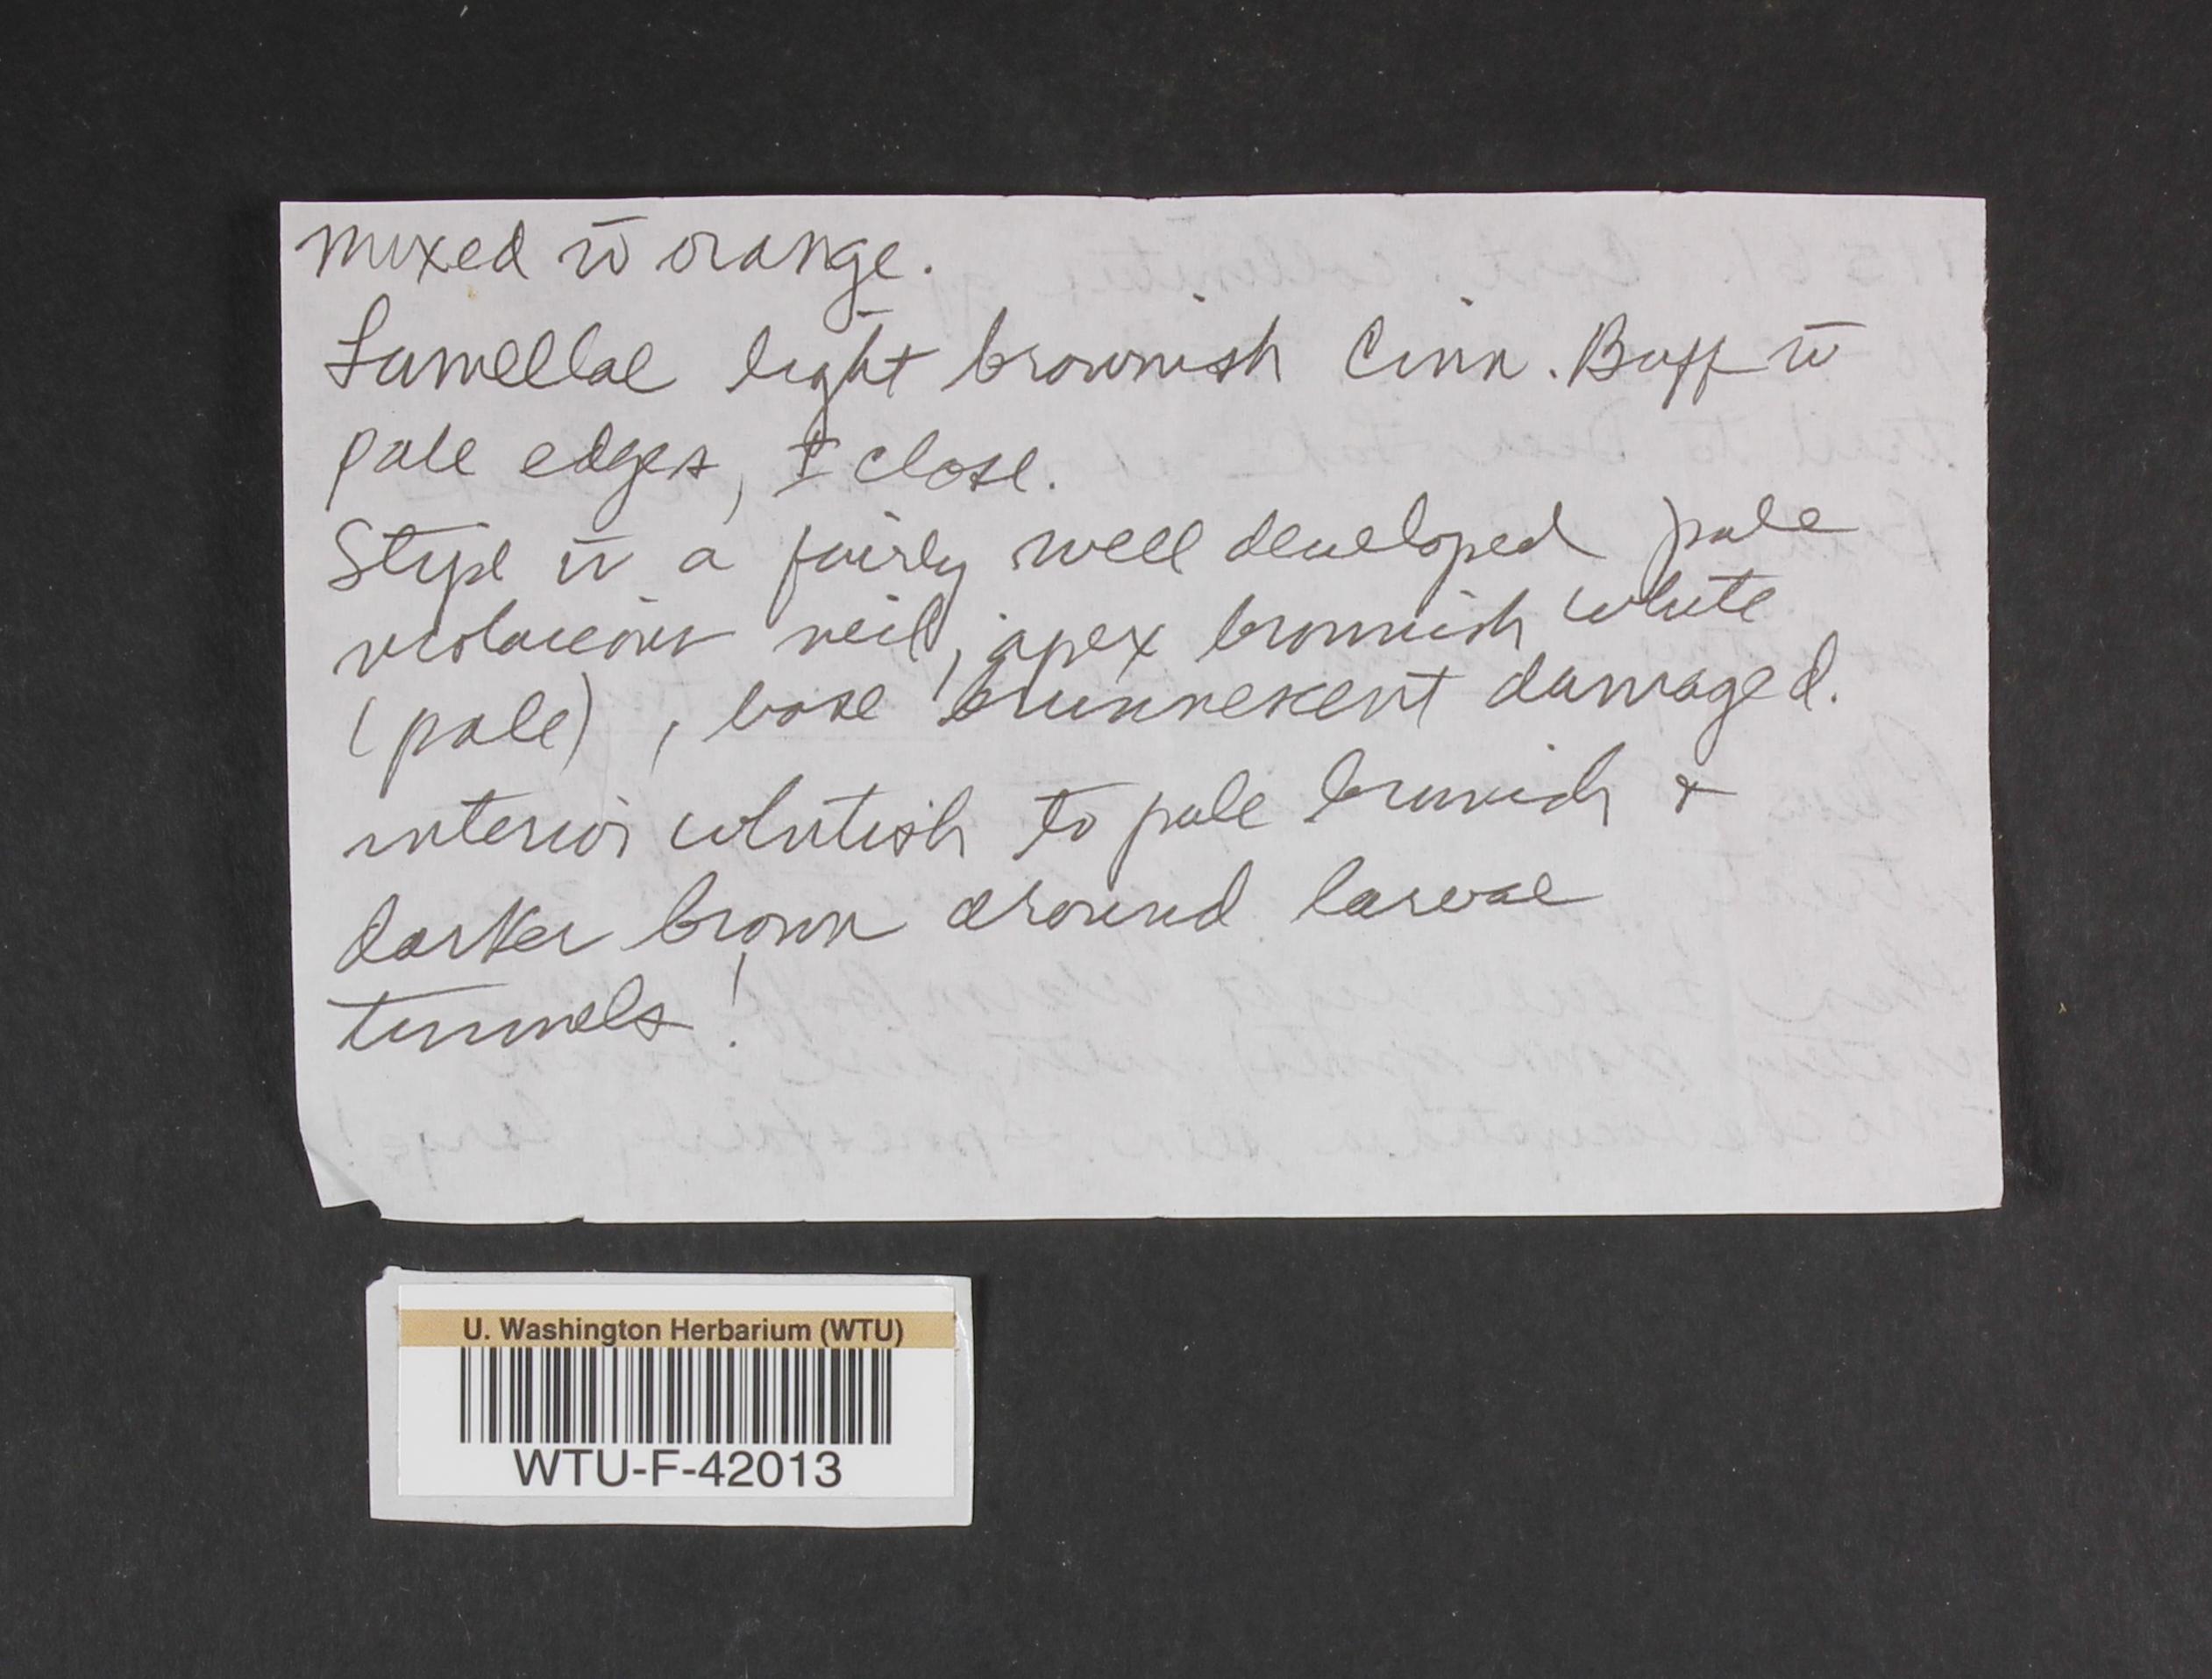 mixed w̄ orange.
Lamellae light brownish Cinn. Buff w̄
pale edges, ± close.
Stipe w̄ a fairly well developed pale
violaceous veil, apex brownish white
(pale), base brunnescent damaged.
interior whitish to pale brunish &
darker brown around larvae
tunnels!
U. Washington Herbarium (WTU)
WTU-F-42013